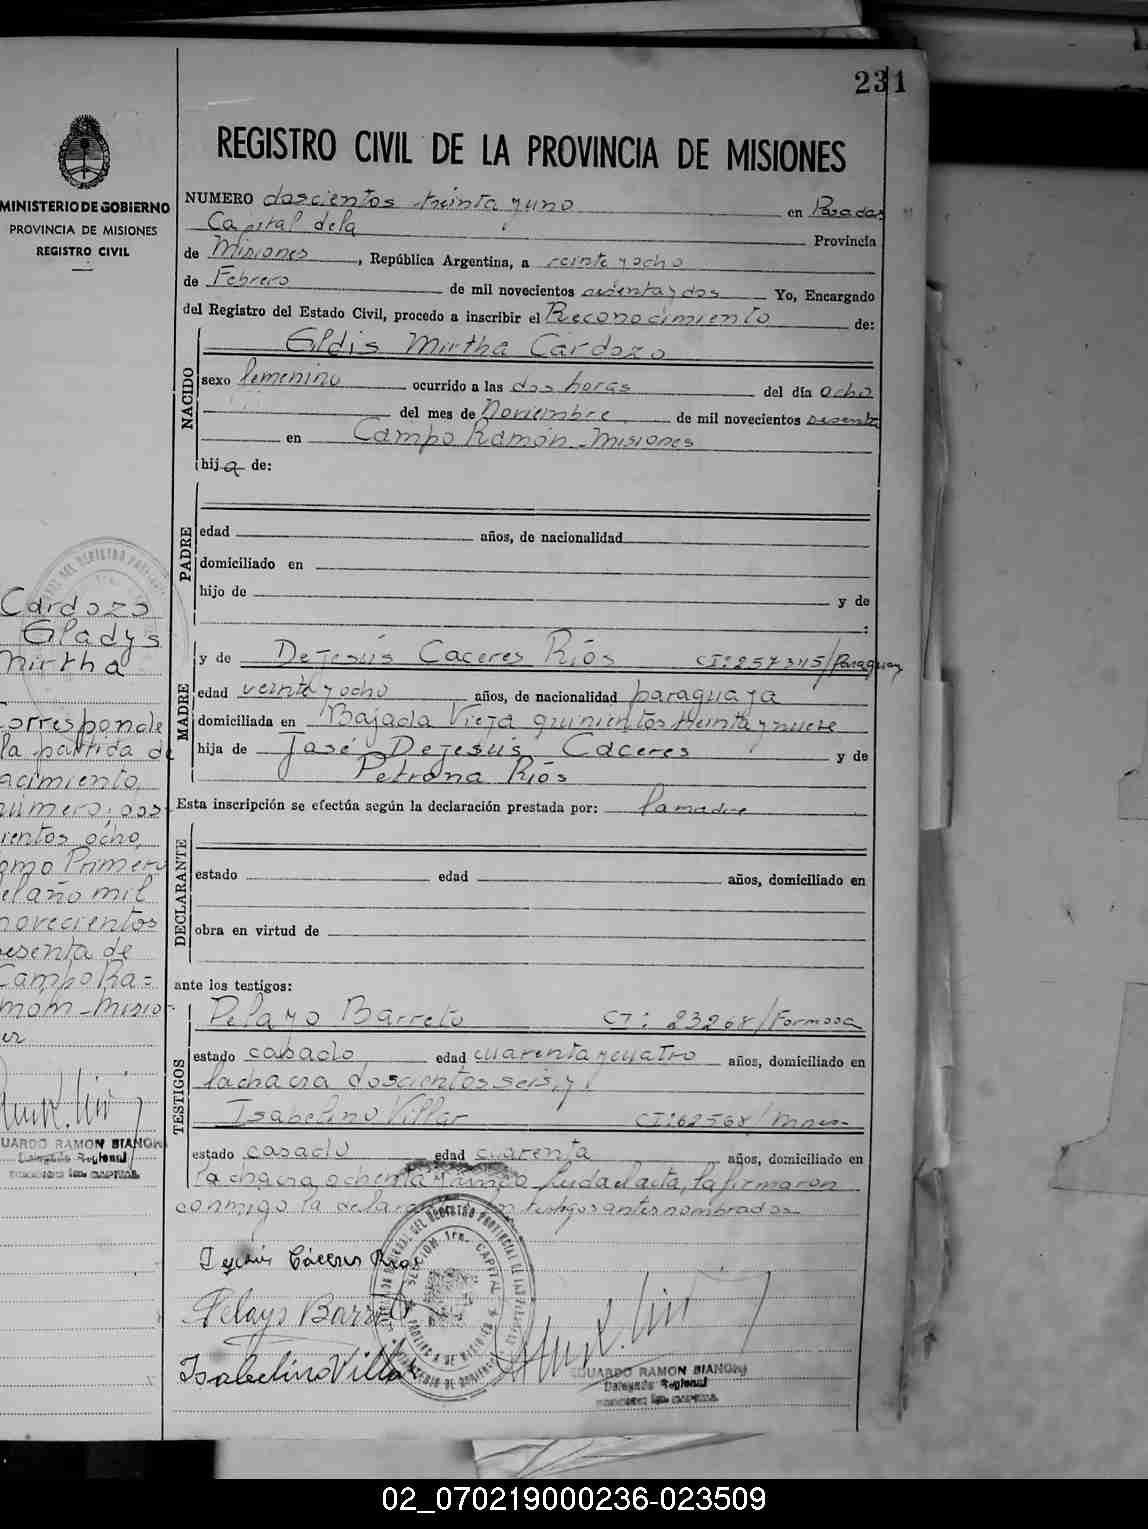 231
MINISTERIO DE GOBIERNO
PROVINCIA DE MISIONES
REGISTRO CIVIL
Cardozo
Gladys
Mirtha
Corresponde
la partida de
acimiento
número; dos
cientos ocho,
omo Primero
el año mil
novecientos
sesenta de
Campo Ra=
mom - Misio-
es
UARDO RAMON BIANCHI
Delegado Regional
REGISTRO CIVIL DE LA PROVINCIA DE MISIONES
NUMERO doscientos treinta y uno en Posadas
Capital de la Provincia
de Misiones, República Argentina, a veinte y ocho
de Febrero de mil novecientos sesenta y dos Yo, Encargado
del Registro del Estado Civil, procedo a inscribir el Reconocimiento de:
NACIDO
Gldis Mirtha Cardozo
sexo femenino ocurrido a las dos horas del día ocho
del mes de Noviembre de mil novecientos sesenta
en Campo Ramón - Misiones
hija de:
PADRE
edad años, de nacionalidad
domiciliado en
hijo de y de
:
MADRE
y de DeJesús Caceres Ríos CI: 257345/Paraguay
edad veinte y ocho años, de nacionalidad paraguaya
domiciliada en Bajada Vieja quinientos treinta y nueve
hija de José DeJesús Caceres y de
Petrona Ríos
Esta inscripción se efectúa según la declaración prestada por: la madre
DECLARANTE
estado edad años, domiciliado en
obra en virtud de
ante los testigos:
TESTIGOS
Pelayo Barreto CI: 23268/Formosa
estado casado edad cuarenta y cuatro años, domiciliado en
la chacra doscientos seis, y
Isabelino Villar CI: 62568/Mnes-
estado casado edad cuarenta años, domiciliado en
la chacra ochenta y cinco Leida el acta, la firmaron
conmigo la testigos antes nombrados
Jesús Cáceres Rios
Pelayo Barreto
Isabelino Villar
SECCION 1ra. CAPITAL
EDUARDO RAMON BIANCHI
Delegado Regional
02_070219000236-023509